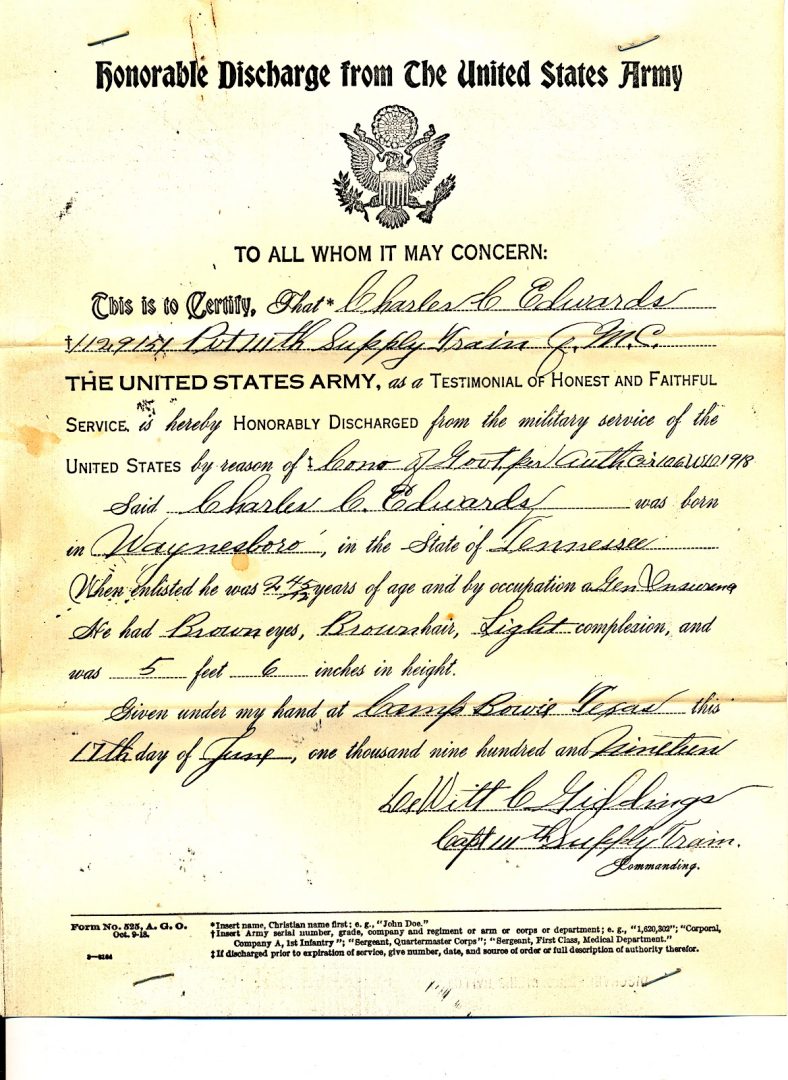 Honorable Discharge from The United States Army
TO ALL WHOM IT MAY CONCERN:
This is to Certify, That* Charles C Edwards
† Pvt 111th Supply Train Q.M.C.
THE UNITED STATES ARMY, as a TESTIMONIAL OF HONEST AND FAITHFUL
SERVICE, is hereby HONORABLY DISCHARGED from the military service of the
UNITED STATES by reason of ‡ Conv of Govt per Auth Cir 106 WD 1918
Said Charles C. Edwards was born
in Waynesboro, in the State of Tennessee
When enlisted he was 24 5/12 years of age and by occupation a Gen Insurance
He had Brown eyes, Brown hair, Light complexion, and
was 5 feet 6 inches in height.
Given under my hand at Camp Bowie Texas this
17th day of June, one thousand nine hundred and Nineteen
DeWitt C Giddings
Capt 111th Supply Train.
Commanding.
Form No. 525, A. G. O.
Oct. 9-18.
*Insert name, Christian name first; e. g., "John Doe."
†Insert Army serial number, grade, company and regiment or arm or corps or department; e. g., "1,620,302"; "Corporal,
Company A, 1st Infantry"; "Sergeant, Quartermaster Corps"; "Sergeant, First Class, Medical Department."
‡If discharged prior to expiration of service, give number, date, and source of order or full description of authority therefor.